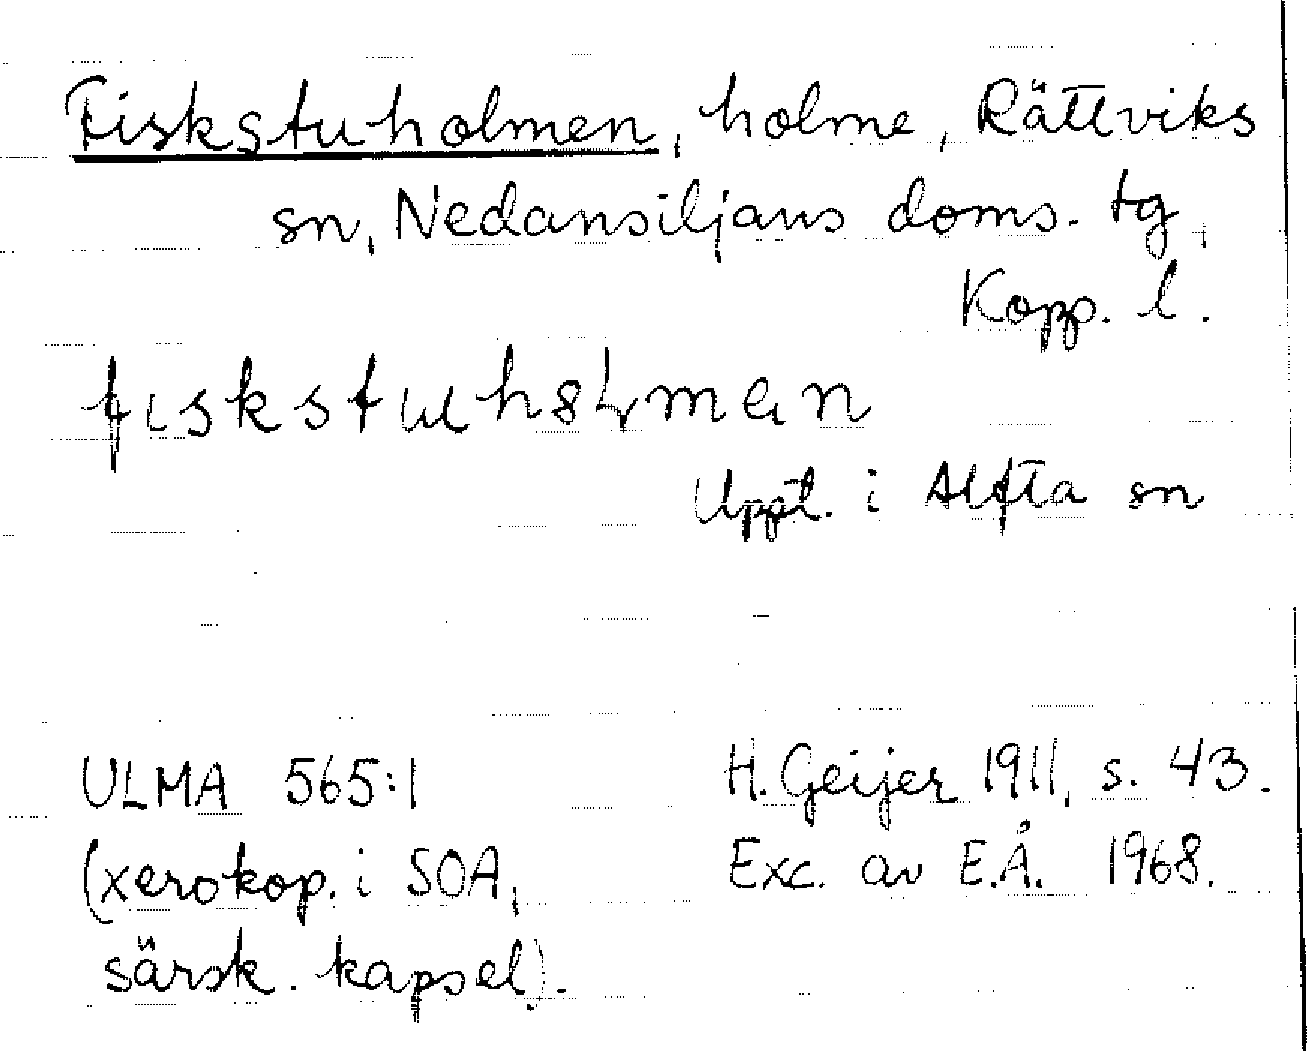 Fiskstuholmen, holme, Rättviks
sn, Nedansiljans doms. tg,
Kopp. l.
Uppt. i Alfta sn
ULMA 565:1
(xerokop. i SOA,
särsk. kapsel).
H. Geijer 1911, s. 43.
Exc. av E.Å. 1968.